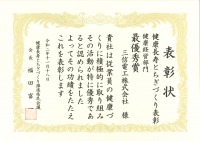 表彰状
健康長寿とちぎづくり表彰
健康経営部門
最優秀賞
三信電工株式会社 様
貴社は従業員の健康づ
くりに積極的に取り組み
その活動が特に優秀であ
ると認められました
よってその功績をたたえ
これを表彰します
令和二年十一月十八日
健康長寿とちぎづくり推進県民会議
会長 福田富一